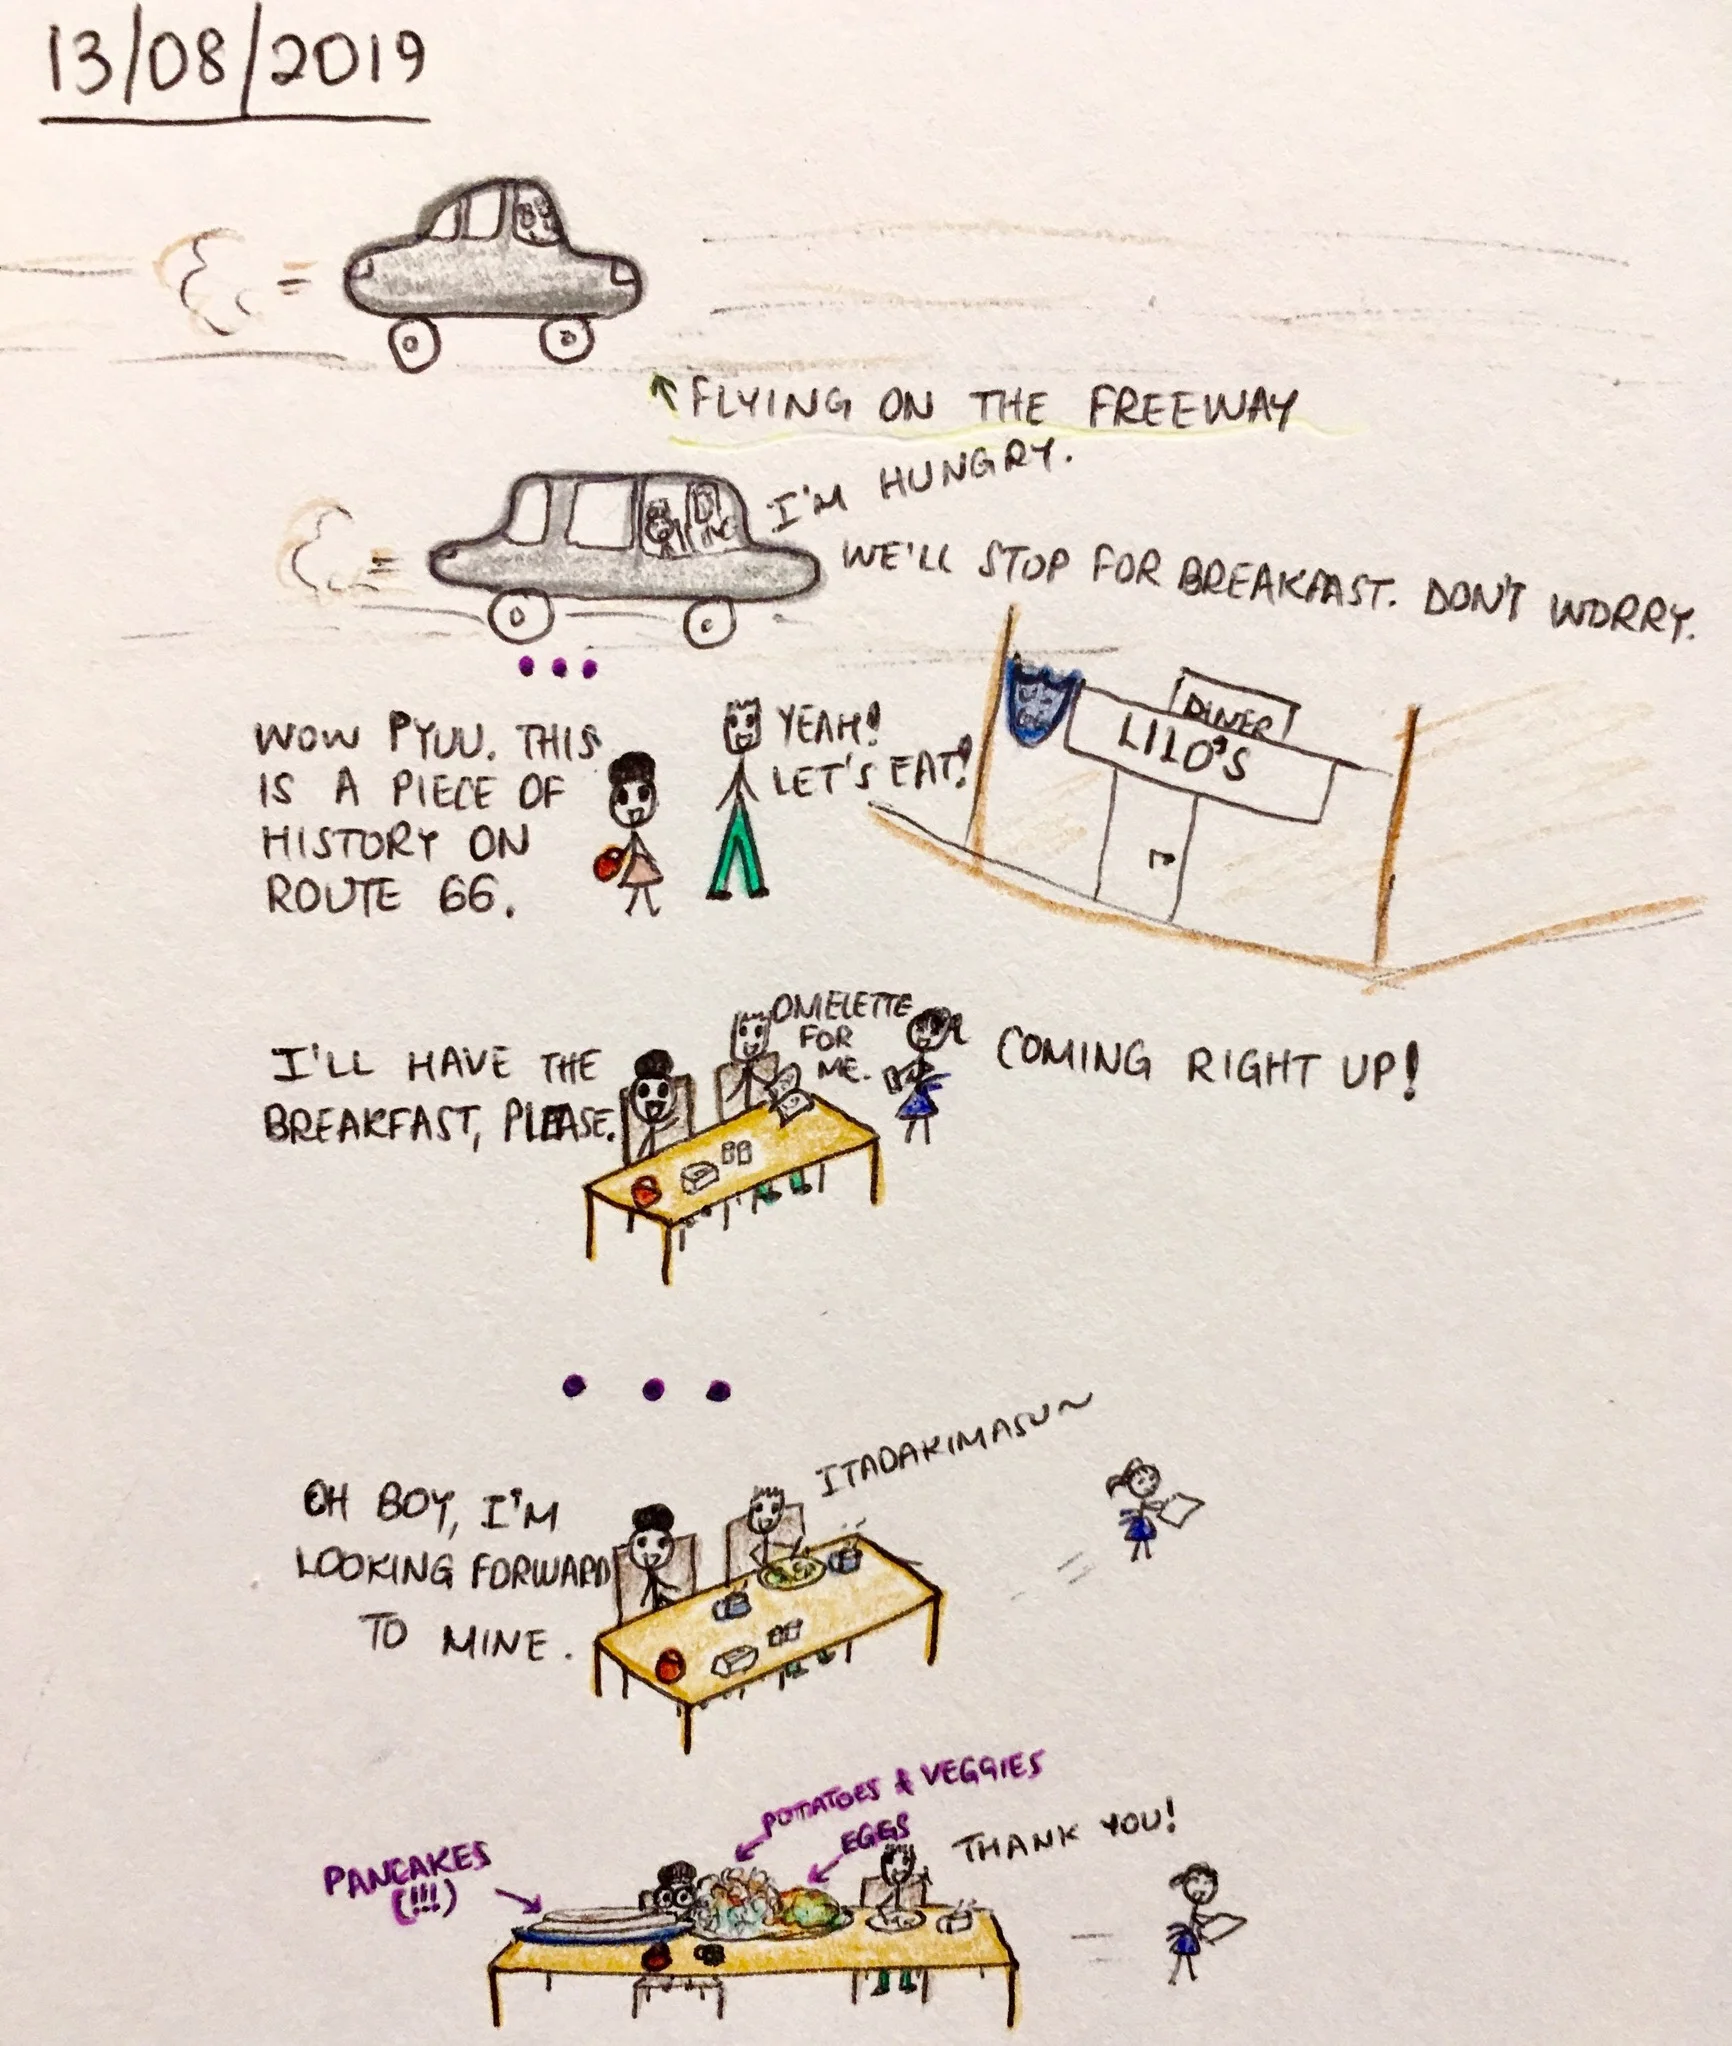 13/08/2019
FLYING ON THE FREEWAY
I'M HUNGRY.
WE'LL STOP FOR BREAKFAST. DON'T WORRY.
WOW PYUU. THIS
IS A PIECE OF
HISTORY ON
ROUTE 66.
YEAH!
LET'S EAT!
DINER
LILO'S
I'LL HAVE THE
BREAKFAST, PLEASE.
OMELETTE
FOR
ME.
COMING RIGHT UP!
OH BOY, I'M
LOOKING FORWARD
TO MINE.
ITADAKIMASU~
PANCAKES
(!!!)
POTATOES & VEGGIES
EGGS
THANK YOU!